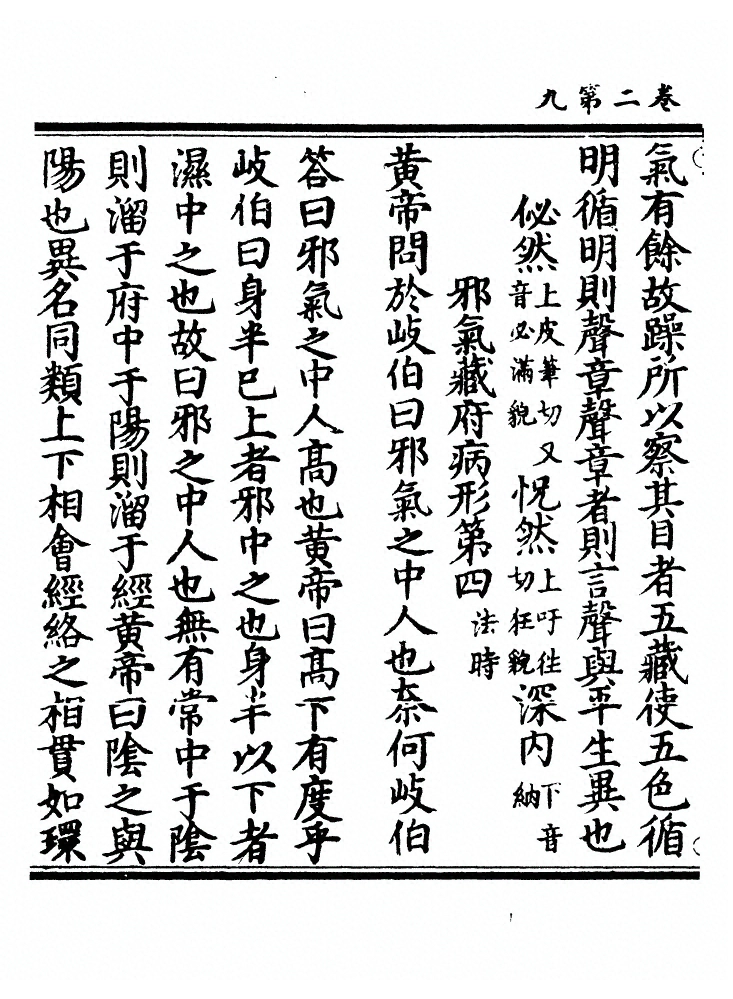 卷二第九
氣有餘故躁所以察其目者五藏使五色循
明循明則聲章聲章者則言聲與平生異也
佖然上皮筆切又音必滿貌怳然上吁往切狂貌深内下音納
邪氣藏府病形第四法時
黄帝問於岐伯曰邪氣之中人也奈何岐伯
答曰邪氣之中人髙也黄帝曰髙下有度乎
岐伯曰身半巳上者邪中之也身半以下者
濕中之也故曰邪之中人也無有常中于陰
則溜于府中于陽則溜于經黄帝曰陰之與
陽也異名同類上下相會經絡之相貫如環